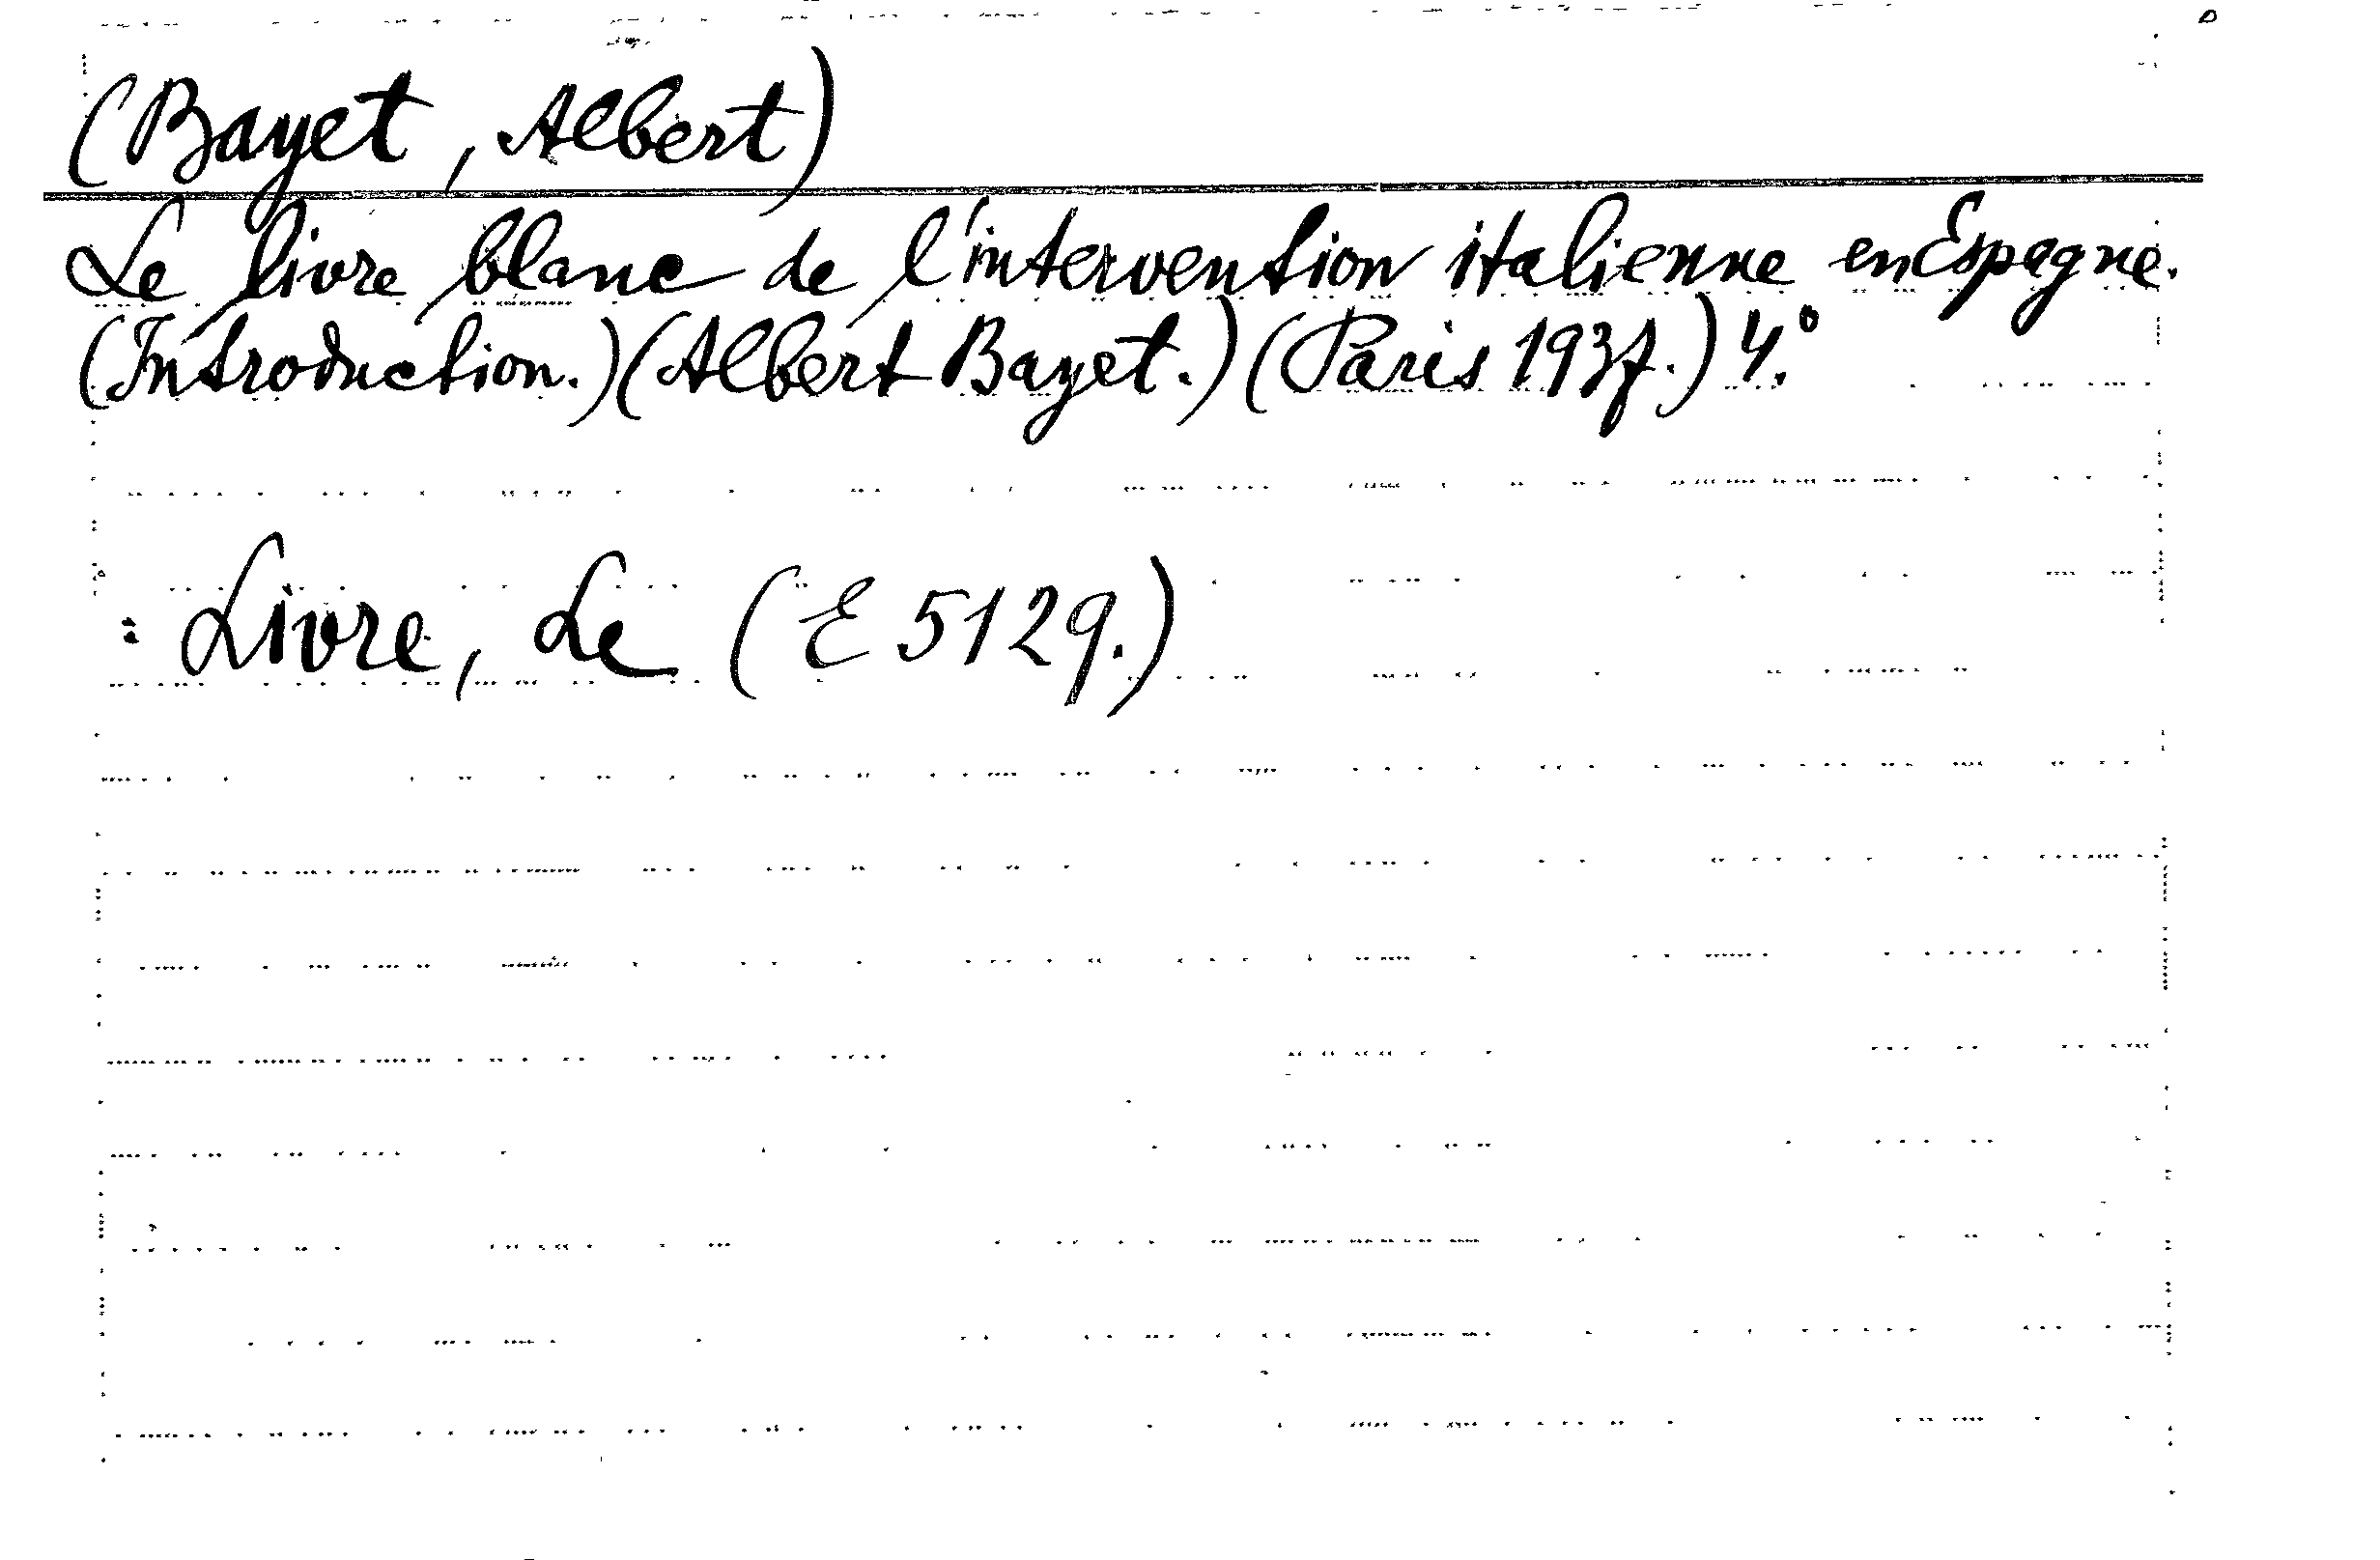 (Bayet, Albert)
Le livre blanc de l'intervention italienne en Espagne.
(Introduction.) (Albert Bayet.) (Paris 1937.) 4.°
: Livre, Le (E 5129.)